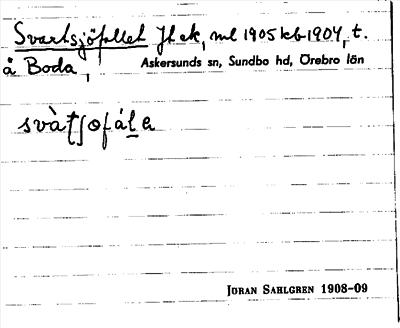 Svartsjöfallet Jl ek, ml 1905 kb 1904, t.
å Boda, Askersunds sn, Sundbo hd, Örebro län
svàţʃofáḷa
Jöran Sahlgren 1908-09